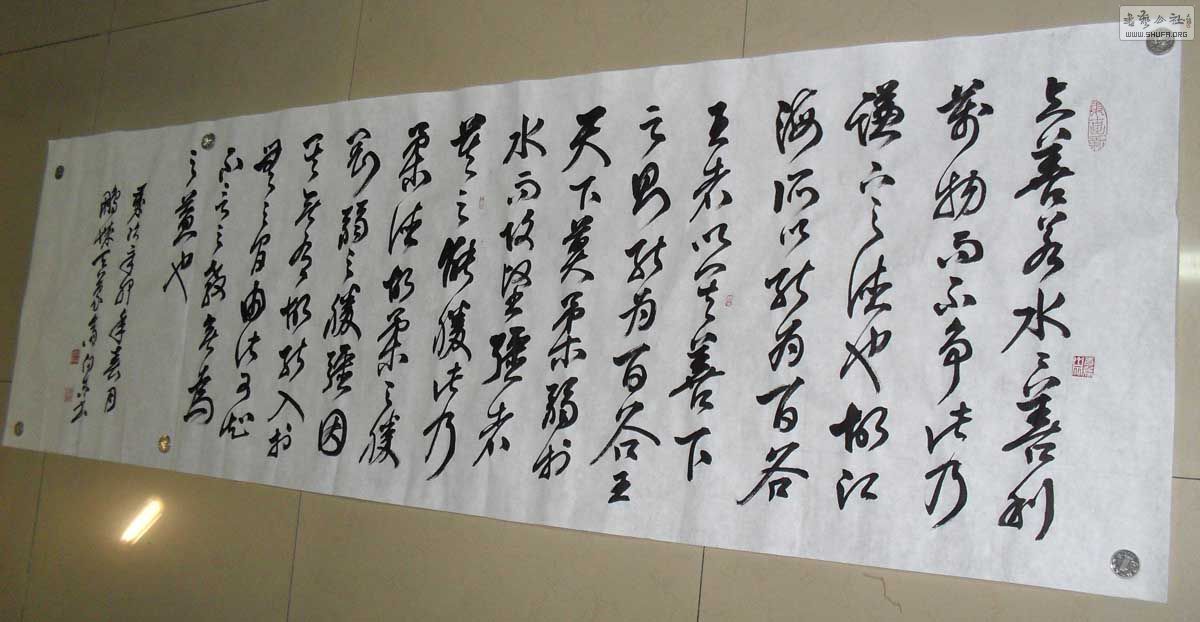 上善若水々善利
萬物而不争此乃
謙下之德也故江
海所以能为百谷
王者以其善下
之則能为百谷王
天下莫柔弱於
水而攻堅强者
莫之能勝此乃
柔德故柔之勝
剛弱之勝强因
其無有故能入於
無之間由此可知
不言之教無為
之益也
辛卯年春月
書藝公社
WWW.SHUFA.ORG